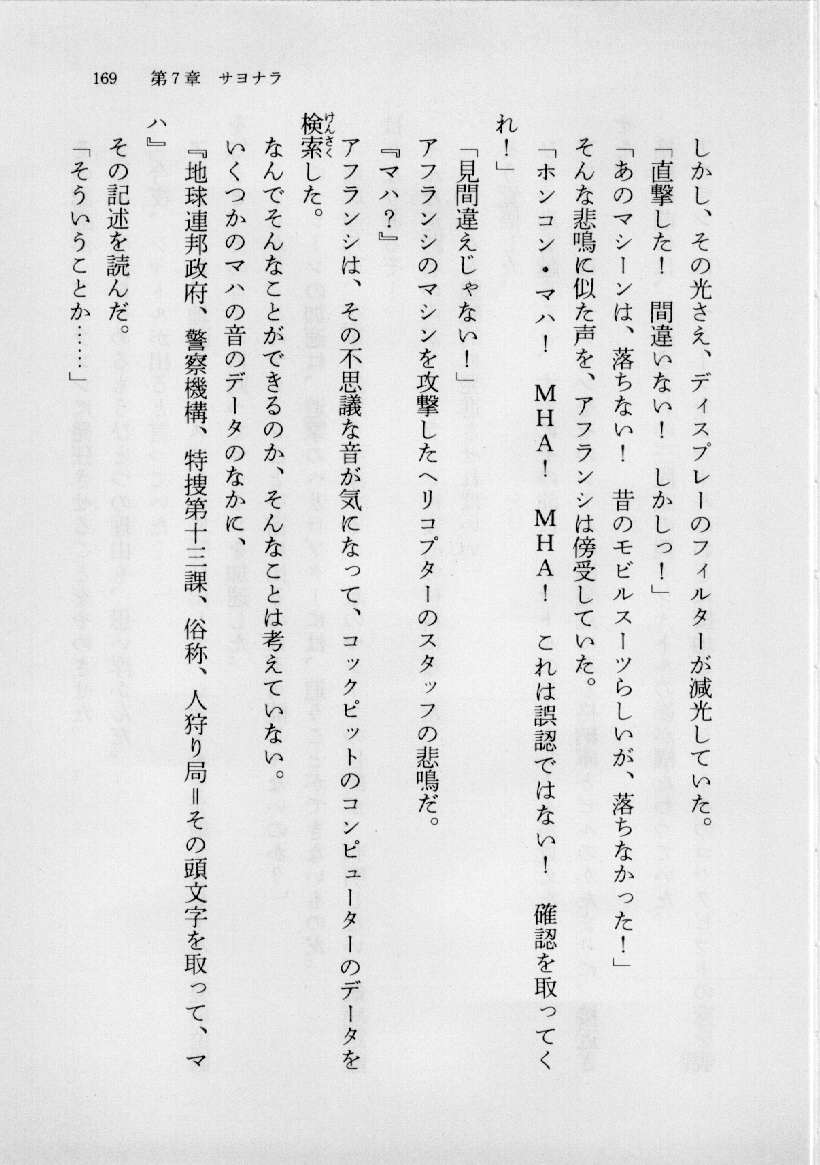 169　第7章　サヨナラ
しかし、その光さえ、ディスプレーのフィルターが減光していた。
「直撃した！　間違いない！　しかしっ！」
「あのマシーンは、落ちない！　昔のモビルスーツらしいが、落ちなかった！」
そんな悲鳴に似た声を、アフランシは傍受していた。
「ホンコン・マハ！　MHA！　MHA！　これは誤認ではない！　確認を取ってく
れ！」
「見間違えじゃない！」
アフランシのマシンを攻撃したヘリコプターのスタッフの悲鳴だ。
『マハ？』
アフランシは、その不思議な音が気になって、コックピットのコンピューターのデータを
検索した。
なんでそんなことができるのか、そんなことは考えていない。
いくつかのマハの音のデータのなかに、
『地球連邦政府、警察機構、特捜第十三課、俗称、人狩り局＝その頭文字を取って、マ
ハ』
その記述を読んだ。
「そういうことか……」